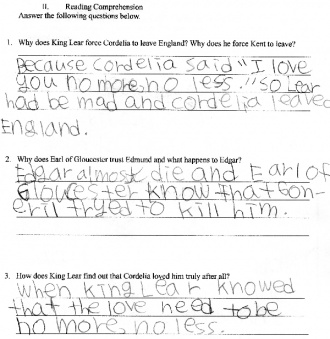 II. Reading Comprehension
Answer the following questions below.
1. Why does King Lear force Cordelia to leave England? Why does he force Kent to leave?
Because cordelia said "I love
you no more, no less." so Lear
had be mad and cordelia leaved
England.
2. Why does Earl of Gloucester trust Edmund and what happens to Edgar?
Edgar almost die and Earl of
Gloucester know that Gon-
eril tryed to kill him.
3. How does King Lear find out that Cordelia loved him truly after all?
when king Lear knowed
that the love need to be
no more, no less.